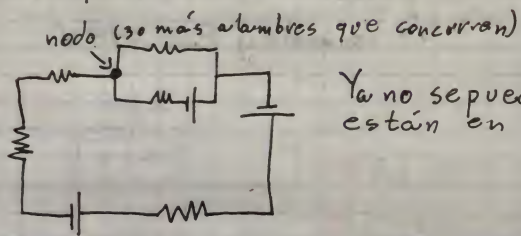 nodo (3 o más alambres que concurran)
Ya no se pue
están en